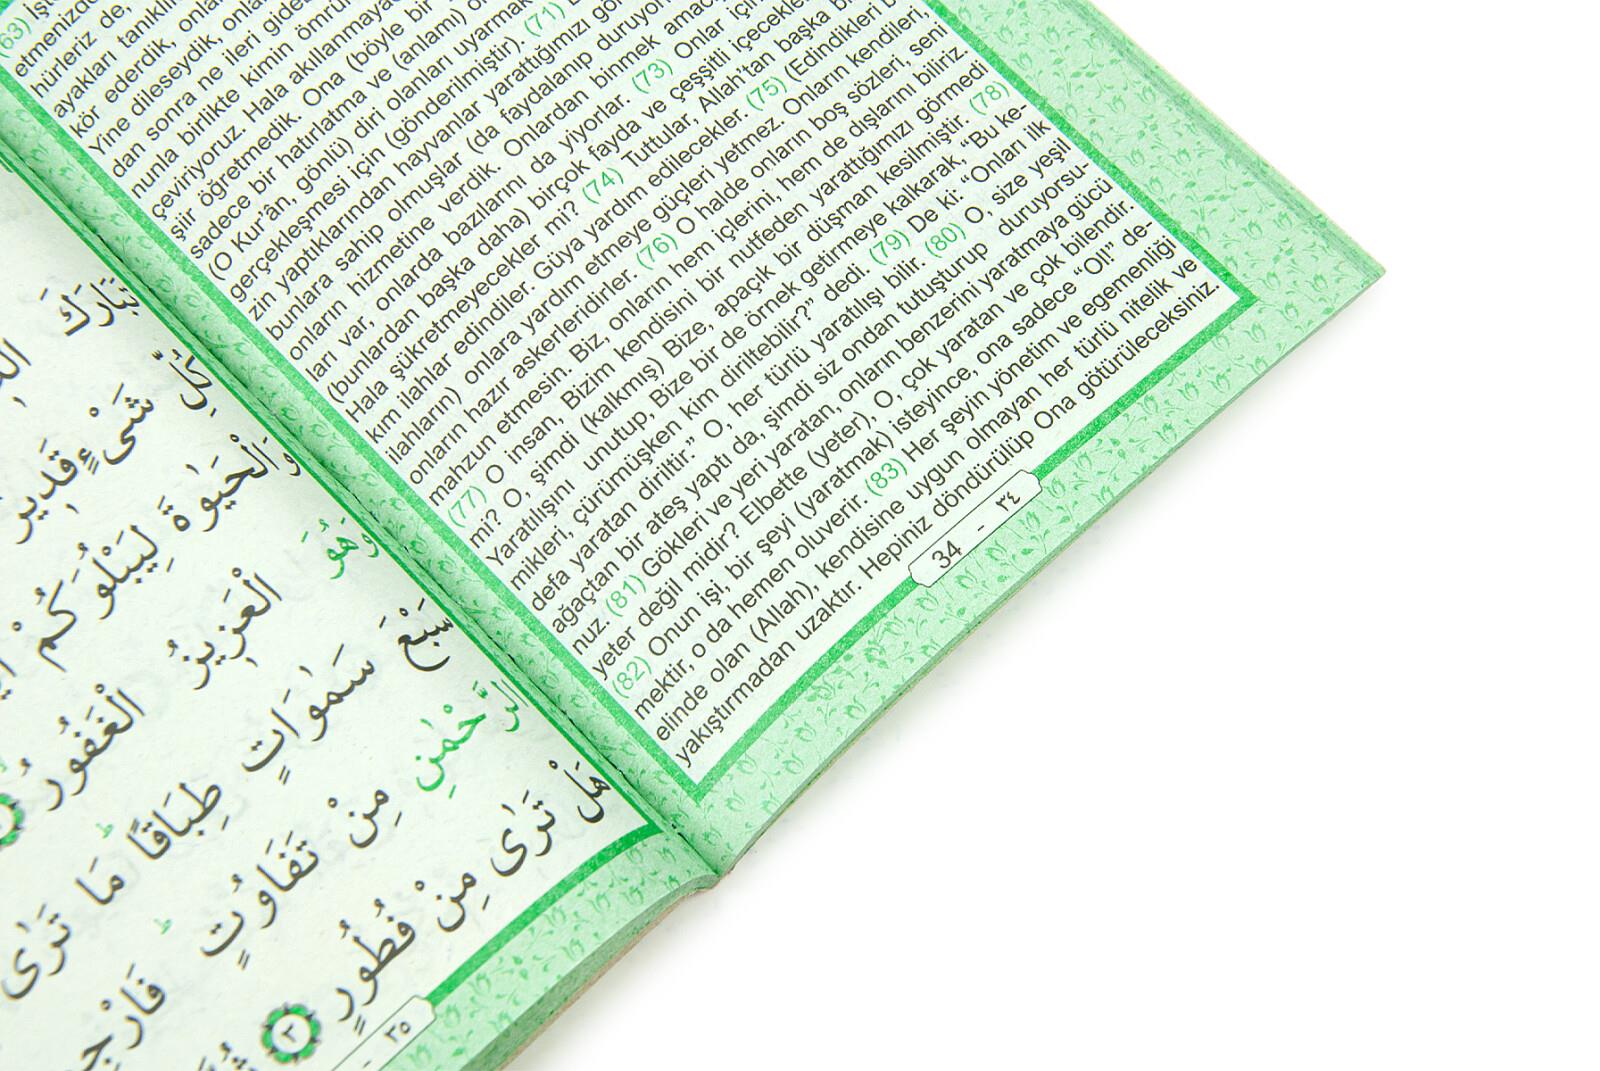 (63)
etmenizde
hürleriz de,
ayakları
kör ederdik,
Yine dileseydik,
dan sonra ne ileri
nunla birlikte kimin
çeviriyoruz. Hala
şiir öğretmedik. Ona (böyle bir
sadece bir hatırlatma ve (anlamı)
(O Kur'ân, gönlü) diri olanları uyarmak
gerçekleşmesi için (gönderilmiştir). (71)
zin yaptıklarından hayvanlar yarattığımızı
bunlara sahip olmuşlar (da faydalanıp
onların hizmetine verdik. Onlardan binmek
ları var, onlarda bazılarını da yiyorlar. (73) Onlar
(bunlardan başka daha) birçok fayda ve çeşşitli
Hala şükretmeyecekler mi? (74) Tuttular, Allah'tan başka
kım ilahlar edindiler. Güya yardım edilecekler. (75) (Edindikleri
ilahların) onlara yardım etmeye güçleri yetmez. Onların kendileri,
onların hazır askerleridirler. (76) O halde onların boş sözleri, seni
mahzun etmesin. Biz, onların hem içlerini, hem de dışlarını biliriz.
(77) O insan, Bizim kendisini bir nutfeden yarattığımızı görmedi
mi? O, şimdi (kalkmış) Bize, apaçık bir düşman kesilmiştir. (78)
Yaratılışını unutup, Bize bir de örnek getirmeye kalkarak, “Bu ke-
mikleri, çürümüşken kim diriltebilir?” dedi. (79) De ki: “Onları ilk
defa yaratan diriltir.” O, her türlü yaratılışı bilir. (80) O, size yeşil
ağaçtan bir ateş yaptı da, şimdi siz ondan tutuşturup duruyorsu-
nuz. (81) Gökleri ve yeri yaratan, onların benzerini yaratmaya gücü
yeter değil midir? Elbette (yeter), O, çok yaratan ve çok bilendir.
(82) Onun işi, bir şeyi (yaratmak) isteyince, ona sadece “Ol!” de-
mektir, o da hemen oluverir. (83) Her şeyin yönetim ve egemenliği
elinde olan (Allah), kendisine uygun olmayan her türlü nitelik ve
yakıştırmadan uzaktır. Hepiniz döndürülüp Ona götürüleceksiniz.
34 - ٣٤
تَبَارَكَ
كُلِّ شَىْءٍ قَدِيرٌ
وَالْحَيٰوةَ لِيَبْلُوَكُمْ
وَهُوَ الْعَزِيزُ الْغَفُورُ
سَبْعَ سَمٰوَاتٍ طِبَاقًا مَا تَرٰى
الرَّحْمٰنِ مِنْ تَفَاوُتٍ فَارْجِعِ
هَلْ تَرٰى مِنْ فُطُورٍ ٣
- ٣٥